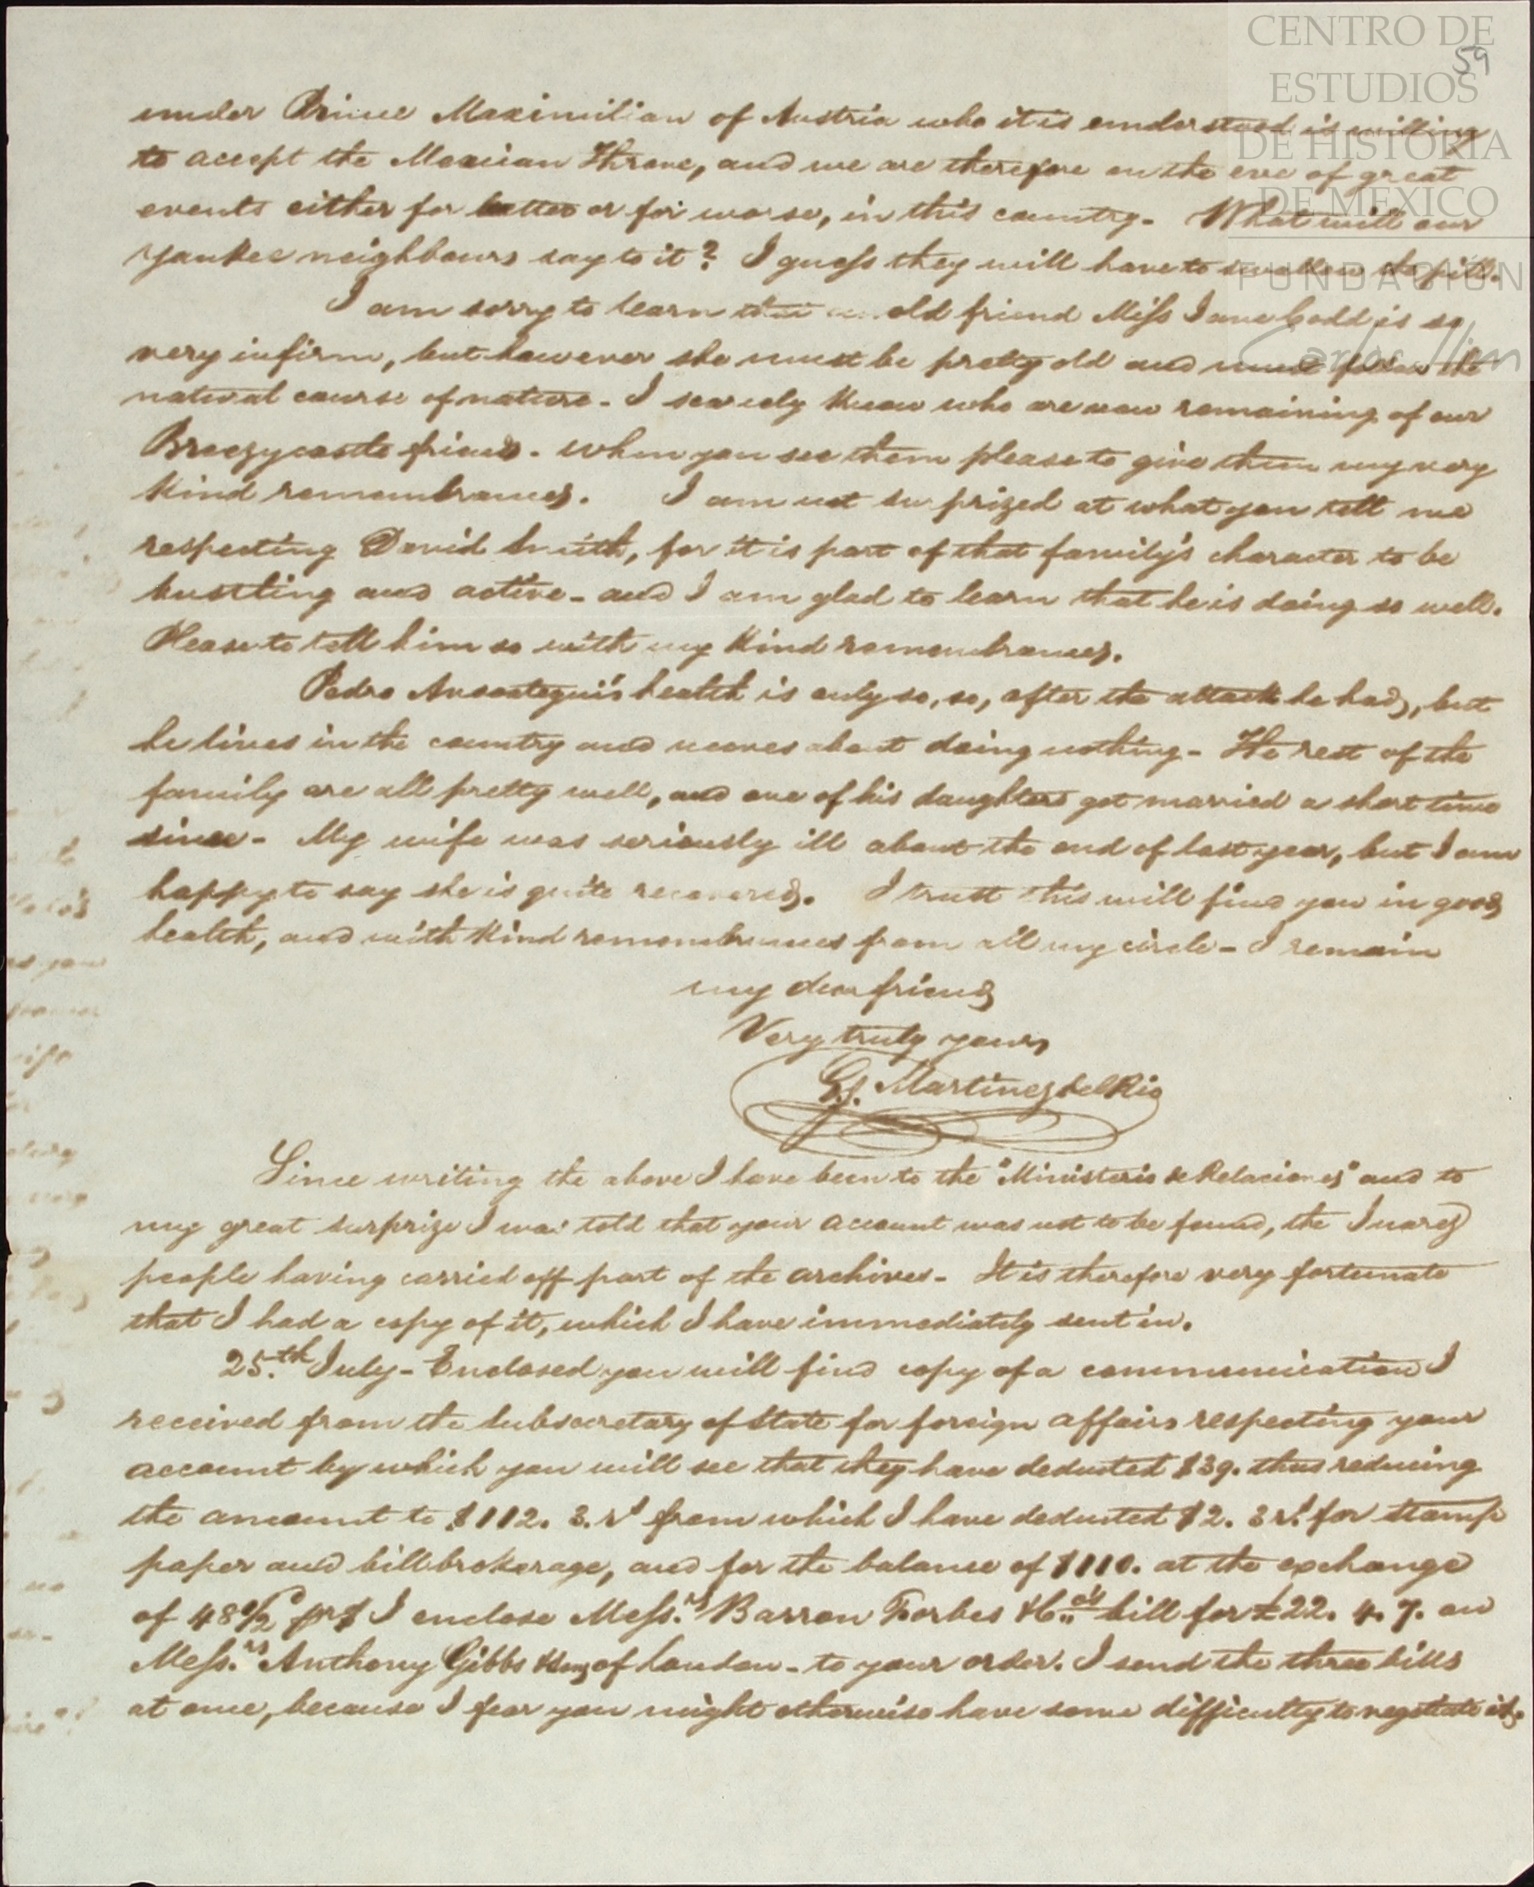 CENTRO DE
ESTUDIOS
DE HISTORIA
DE MEXICO
FUNDACIÓN
Carlos Slim
59
under Prince Maximilian of Austria who it is understood is willing
to accept the Mexican Throne, and we are therefore on the eve of great
events either for better or for worse, in this country. What will our
Yankee neighbours say to it? I guess they will have to swallow the pill.
I am sorry to learn that old friend Miss Jane Codd is so
very infirm, but however she must be pretty old and must follow the
natural course of nature - I scarcely know who are now remaining of our
Breezycastle friends - When you see them please to give them my very
kind remembrances. I am not surprized at what you tell me
respecting David Smith, for it is part of that family's character to be
bustling and active - and I am glad to learn that he is doing so well.
Please to tell him so with my kind remembrances.
Pedro Ansoategui's health is only so, so, after the attack he had, but
he lives in the country and moves about doing nothing - The rest of the
family are all pretty well, and one of his daughters got married a short time
since - My wife was seriously ill about the end of last year, but I am
happy to say she is quite recovered. I trust this will find you in good
health, and with kind remembrances from all my circle - I remain
my dear friend
Very truly yours,
G. J. Martinez del Rio
Since writing the above I have been to the "Ministerio de Relaciones" and to
my great surprize I was told that your account was not to be found, the Juarez
people having carried off part of the archives - It is therefore very fortunate
that I had a copy of it, which I have immediately sent in.
25.th July - Enclosed you will find copy of a communication I
received from the Subsecretary of State for foreign affairs respecting your
account by which you will see that they have deducted $39. thus reducing
the amount to $112. 3. rs from which I have deducted $2. 3 rs. for stamp
paper and bill brokerage, and for the balance of $110. at the exchange
of 48 1/2 d pr $ I enclose Mess.rs Barron Forbes & Co.'s bill for £22. 4. 7. on
Mess.rs Anthony Gibbs & Sons of London - to your order. I send the three bills
at once, because I fear you might otherwise have some difficulty to negotiate it.